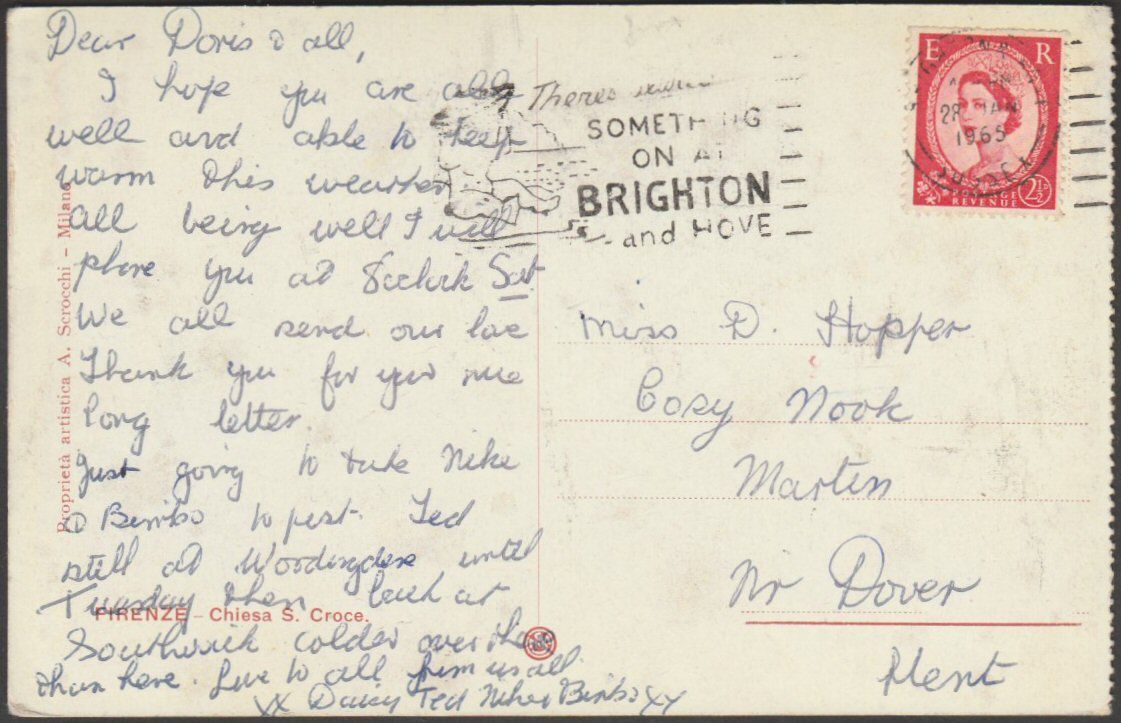 Dear Doris & all,
I hope you are all
well and able to keep
warm this weather
all being well I will
phone you at 8 oclock Sat
We all send our love
Thank you for your nice
long letter.
Just going to take Nike
& Bimbo to post. Ted
still at Woodingdean until
Tuesday then back at
Southwick colder over there
than here. Love to all from us all
xx Daisy Ted Nike Bimbo xx
Proprietà artistica A. Scrocchi – Milano
FIRENZE – Chiesa S. Croce.
Theres
SOMETHING
ON AT
BRIGHTON
and HOVE
28 JAN
1965
SUSSEX
E R
POSTAGE
REVENUE
2½D
Miss D. Hopper
Cosy Nook
Martin
Nr Dover
Kent